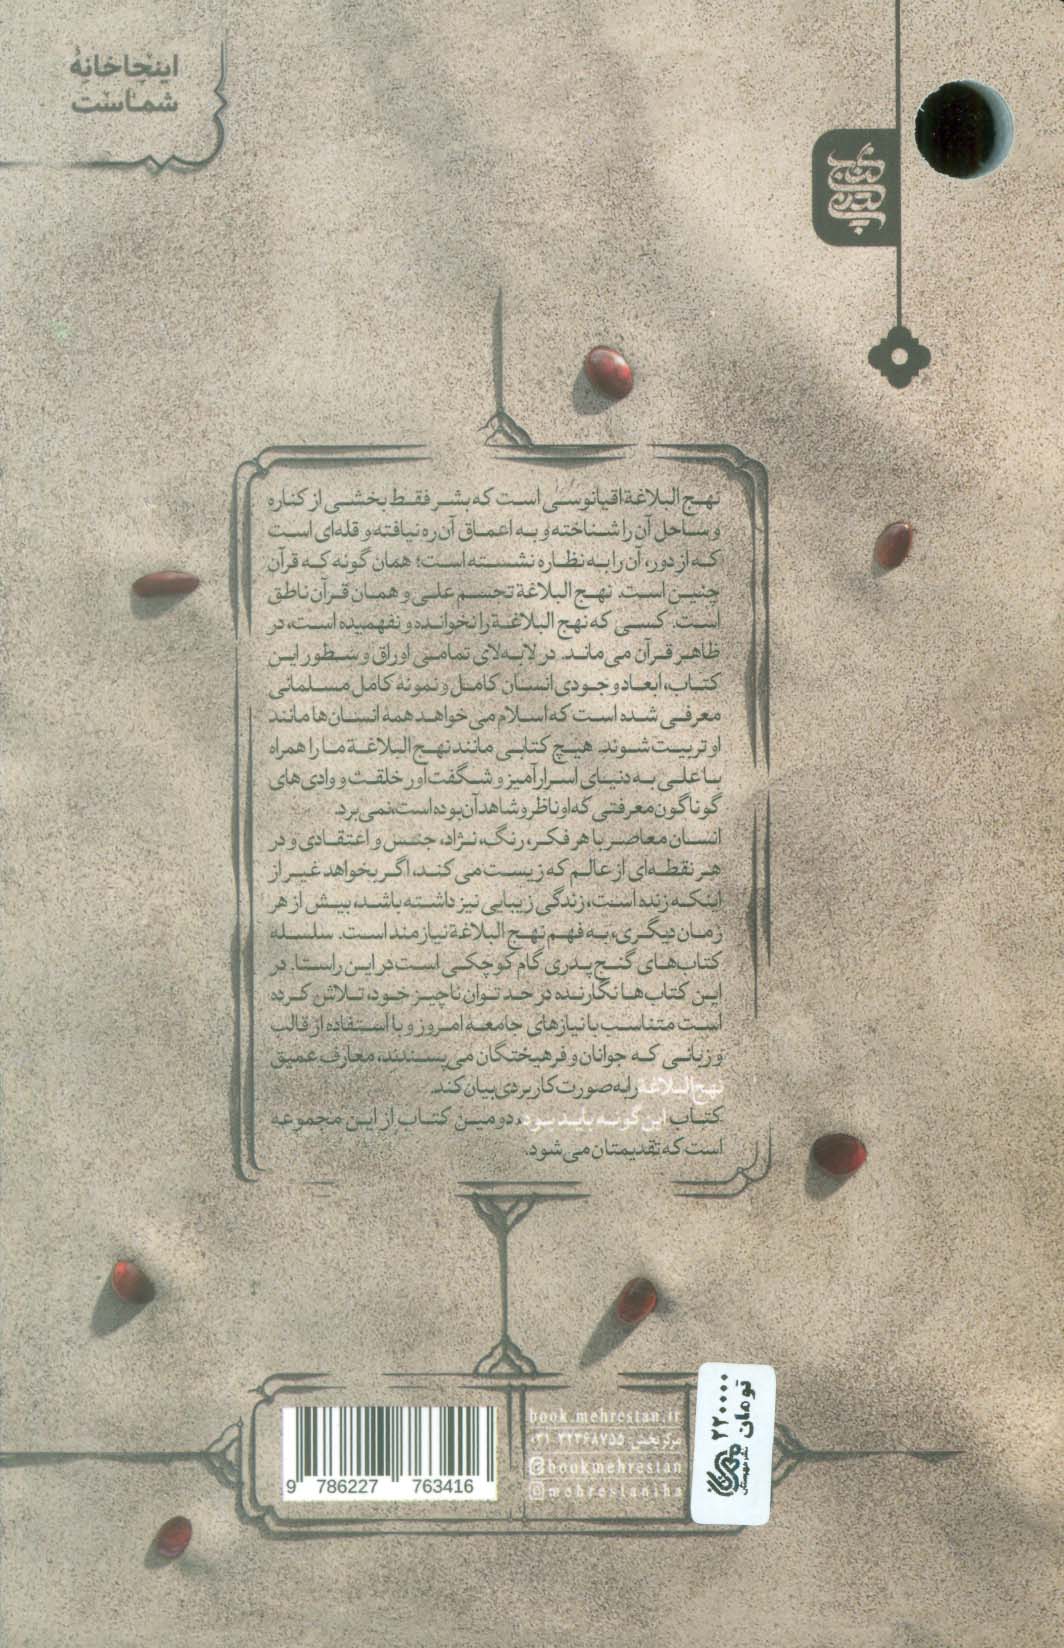 اینجا خانهٔ
شماست
گنج
پدری
نهج البلاغة اقیانوسی است که بشر فقط بخشی از کناره
و ساحل آن را شناخته و به اعماق آن ره نیافته و قله‌ای است
که از دور، آن را به نظاره نشسته است؛ همان گونه که قرآن
چنین است. نهج البلاغة تجسم علی و همان قرآن ناطق
است. کسی که نهج البلاغة را نخوانده و نفهمیده است، در
ظاهر قرآن می‌ماند. در لابه‌لای تمامی اوراق و سطور این
کتاب، ابعاد وجودی انسان کامل و نمونه کامل مسلمانی
معرفی شده است که اسلام می خواهد همه انسان‌ها مانند
او تربیت شوند. هیچ کتابی مانند نهج البلاغة ما را همراه
با علی به دنیای اسرارآمیز و شگفت آور خلقت و وادی های
گوناگون معرفتی که او ناظر و شاهد آن بوده است، نمی برد.
انسان معاصر با هر فکر، رنگ، نژاد، جنس و اعتقادی و در
هر نقطه‌ای از عالم که زیست می کند، اگر بخواهد غیر از
اینکه زنده است، زندگی زیبایی نیز داشته باشد، بیش از هر
زمان دیگری، به فهم نهج البلاغة نیازمند است. سلسله
کتاب‌های گنج پدری گام کوچکی است در این راستا. در
این کتاب ها نگارنده در حد توان ناچیز خود، تلاش کرده
است متناسب با نیازهای جامعه امروز و با استفاده از قالب
و زبانی که جوانان و فرهیختگان می‌پسندند، معارف عمیق
نهج البلاغة را به صورت کاربردی بیان کند.
کتاب این گونه باید بود، دومین کتاب از این مجموعه
است که تقدیمتان می شود.
book.mehrestan.ir
مرکز پخش: ۳۲۳۶۸۷۵۵-۰۳۱
bookmehrestan
mehrestaniha
9 786227 763416
۲۲۰۰۰۰
تومان
نشر مهرستان